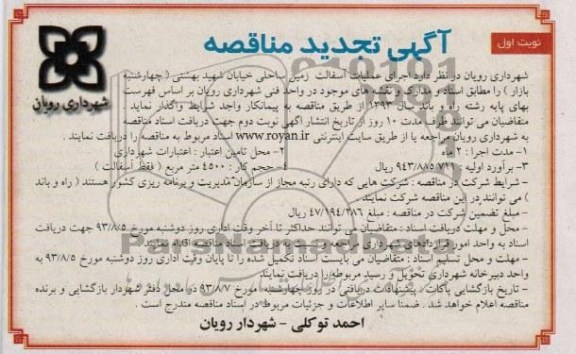 نوبت اول
آگهی تجدید مناقصه
شهرداری رویان
شهرداری رویان در نظر دارد اجرای عملیات آسفالت زمین ساحلی خیابان شهید بهشتی ( چهارشنبه
بازار ) را مطابق اسناد و مدارک و نقشه های موجود در واحد فنی شهرداری رویان بر اساس فهرست
بهای پایه رشته راه و باند سال ۱۳۹۳ از طریق مناقصه به پیمانکار واجد شرایط واگذار نماید
متقاضیان می توانند ظرف مدت ۱۰ روز از تاریخ انتشار آگهی نوبت دوم جهت دریافت اسناد مناقصه
به شهرداری رویان مراجعه یا از طریق سایت اینترنتی www.royan.ir اسناد مربوط به مناقصه را دریافت نمایند .
۱- مدت اجرا : ۲ ماه
۲- محل تامین اعتبار : اعتبارات شهرداری
۳- برآورد اولیه : ۹۴۳/۸۸۵/۷۲۱ ریال
۴- حجم کار : ۴۵۰۰ متر مربع ( فقط آسفالت )
- شرایط شرکت در مناقصه : شرکت هایی که دارای رتبه مجاز از سازمان مدیریت و برنامه ریزی کشور هستند ( راه و باند
) می توانند در این مناقصه شرکت نمایند .
- مبلغ تضمین شرکت در مناقصه : مبلغ ۴۷/۱۹۴/۲۸۶ ریال
- محل و مهلت دریافت اسناد : متقاضیان می توانند حداکثر تا آخر وقت اداری روز دوشنبه مورخ ۹۳/۸/۵ جهت دریافت
اسناد به واحد امور قراردادهای شهرداری نمایند .
- مهلت و محل تسلیم اسناد : متقاضیان می بایست اسناد تکمیل شده را تا پایان وقت اداری روز دوشنبه مورخ ۹۳/۸/۵ به
واحد دبیرخانه شهرداری تحویل و رسید مربوطه را دریافت نمایند
- تاریخ بازگشایی پاکات : پیشنهادات دریافتی در روز چهارشنبه مورخ ۹۳/۸/۷ در محل دفتر شهردار بازگشایی و برنده
مناقصه اعلام خواهد شد . ضمنا سایر اطلاعات و جزئیات مربوط در اسناد مناقصه مندرج است .
احمد توکلی - شهردار رویان